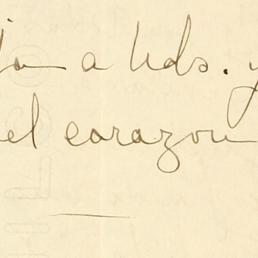 a Uds. y
el corazon